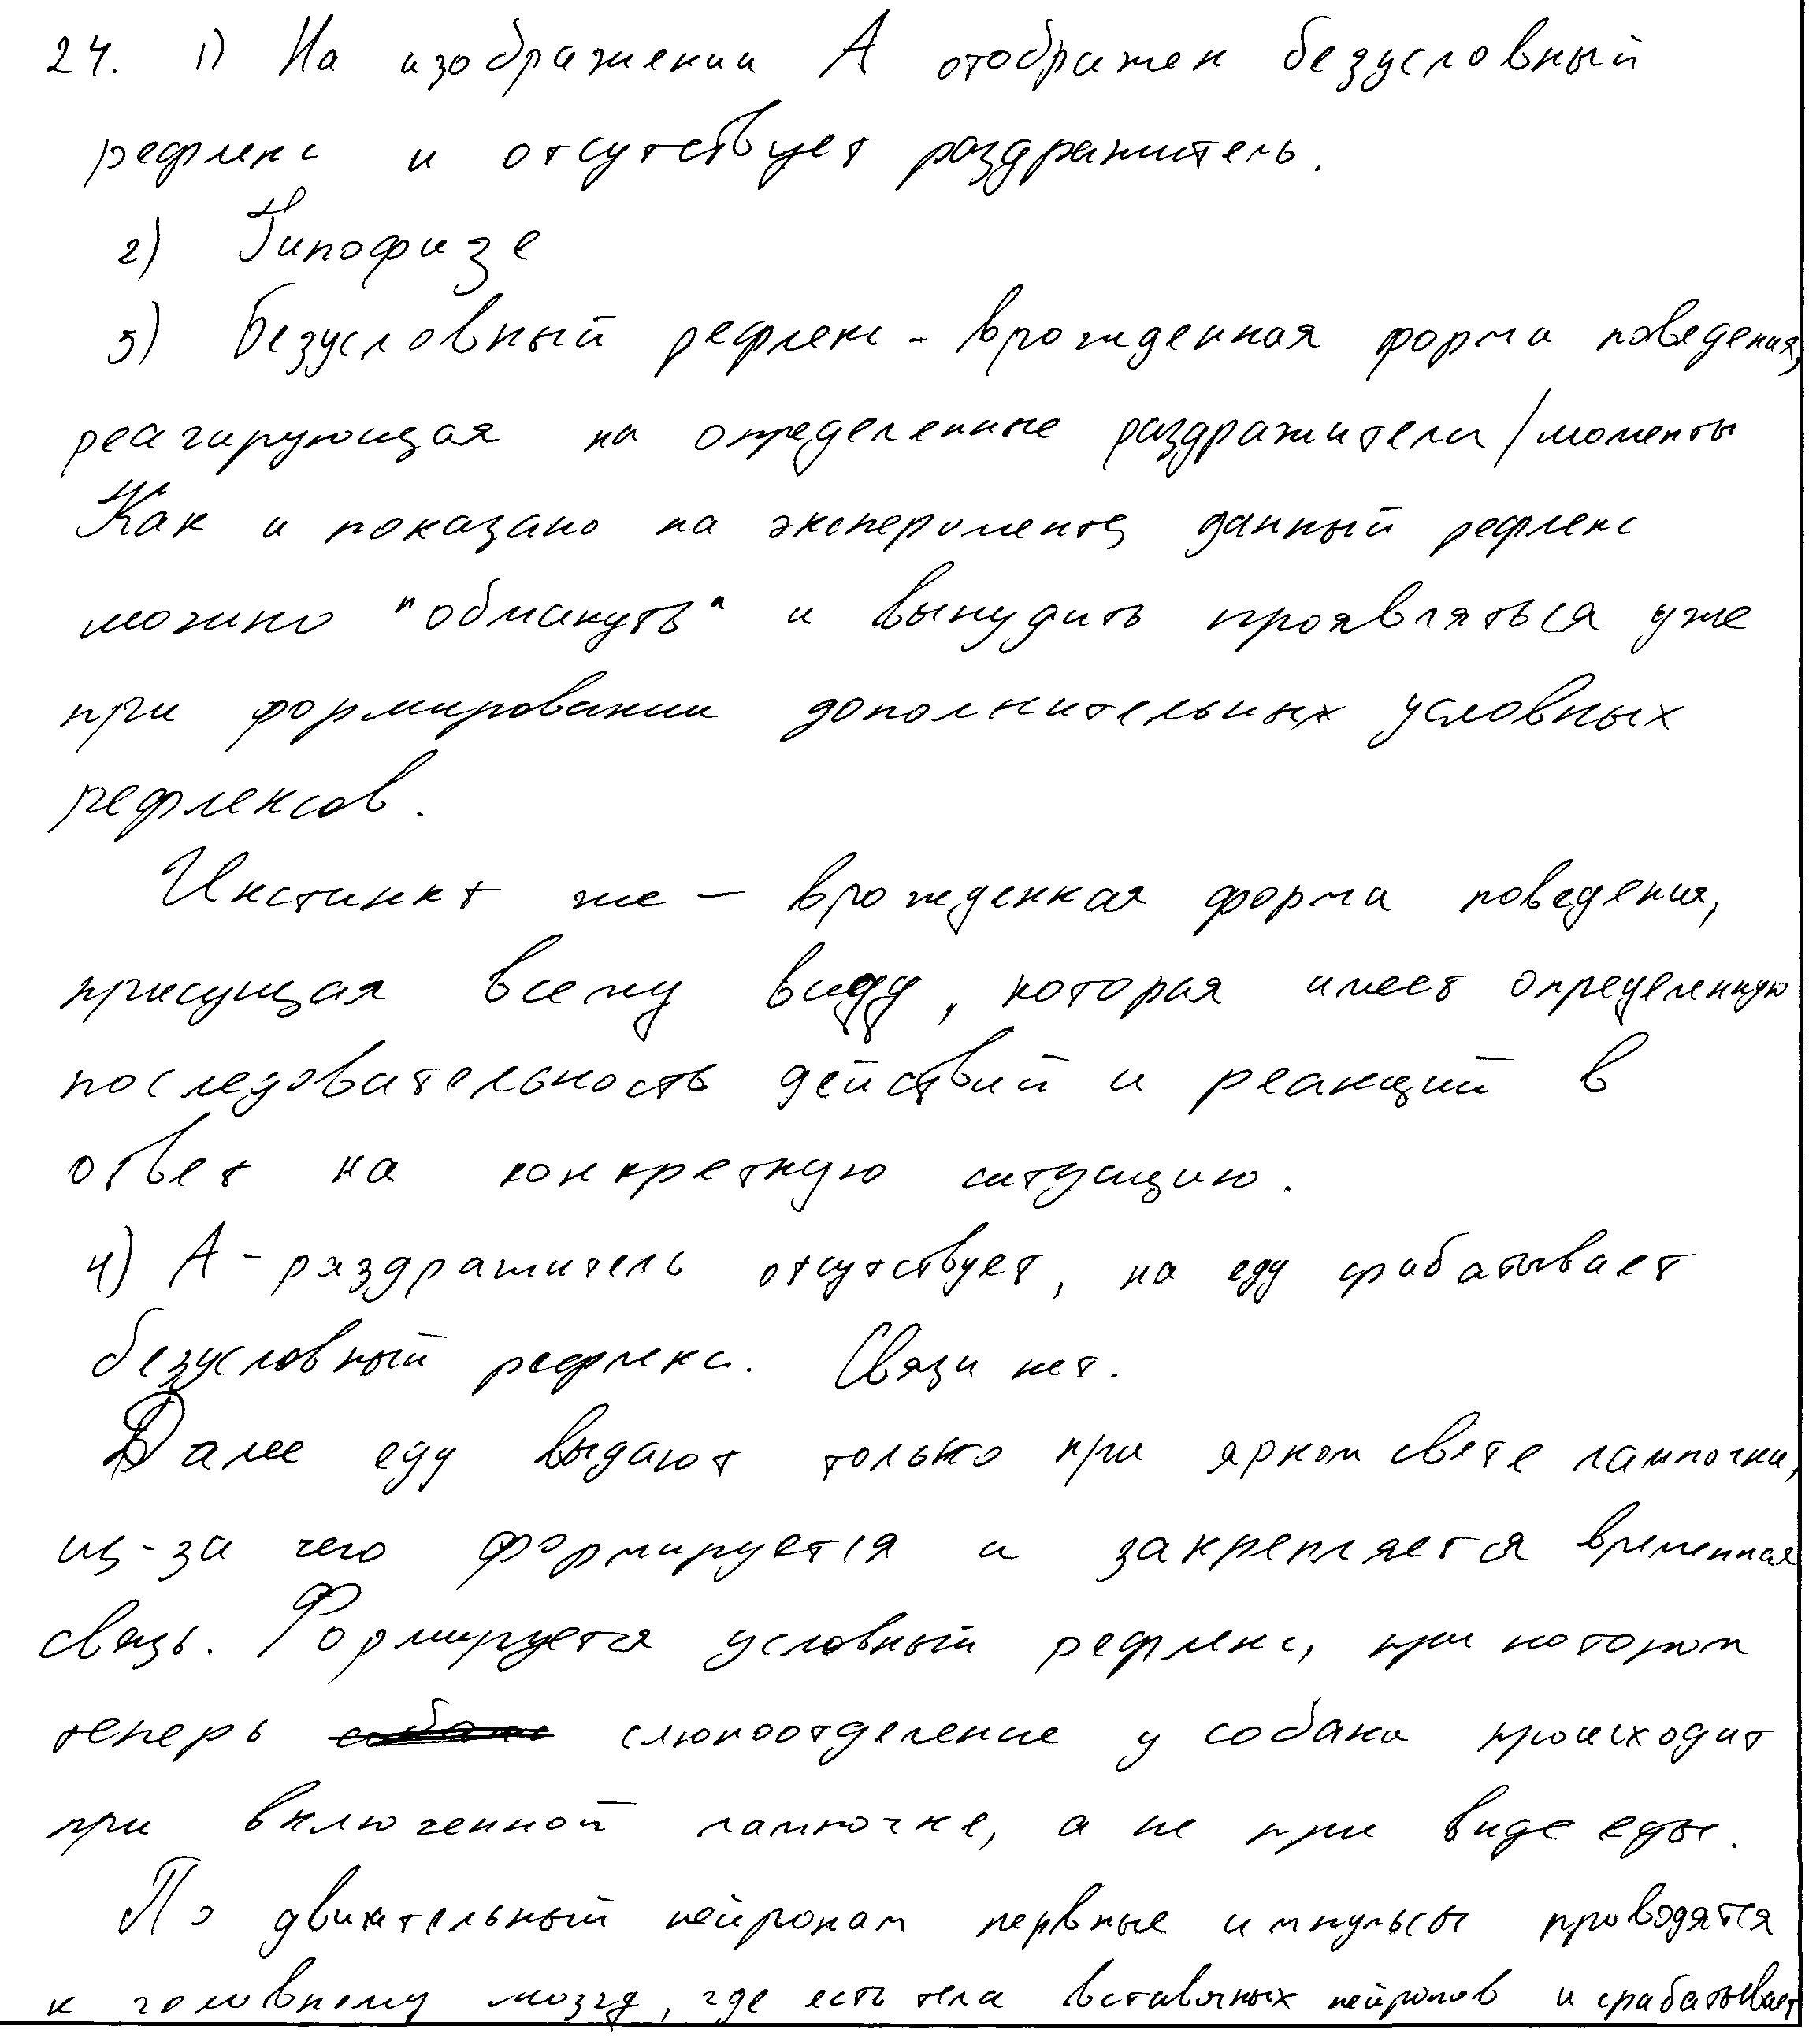 24. 1) На изображении А отображен безусловный
рефлекс и отсутствует раздражитель.
2) Гипофизе
3) Безусловный рефлекс - врожденная форма поведения,
реагирующая на определенные раздражители/моменты
Как и показано на эксперименте, данный рефлекс
можно "обмануть" и вынудить проявляться уже
при формировании дополнительных условных
рефлексов.
Инстинкт же – врожденная форма поведения,
присущая всему виду, которая имеет определенную
последовательность действий и реакций в
ответ на конкретную ситуацию.
4) А - раздражитель отсутствует, на еду срабатывает
безусловный рефлекс. Связи нет.
Далее еду выдают только при ярком свете лампочки,
из-за чего формируется и закрепляется временная
связь. Формируется условный рефлекс, при котором
теперь слюноотделение у собаки происходит
при включенной лампочке, а не при виде еды.
По двигательный нейронам нервные импульсы проводятся
к головному мозгу, где есть тела вставочных нейронов и срабатывает